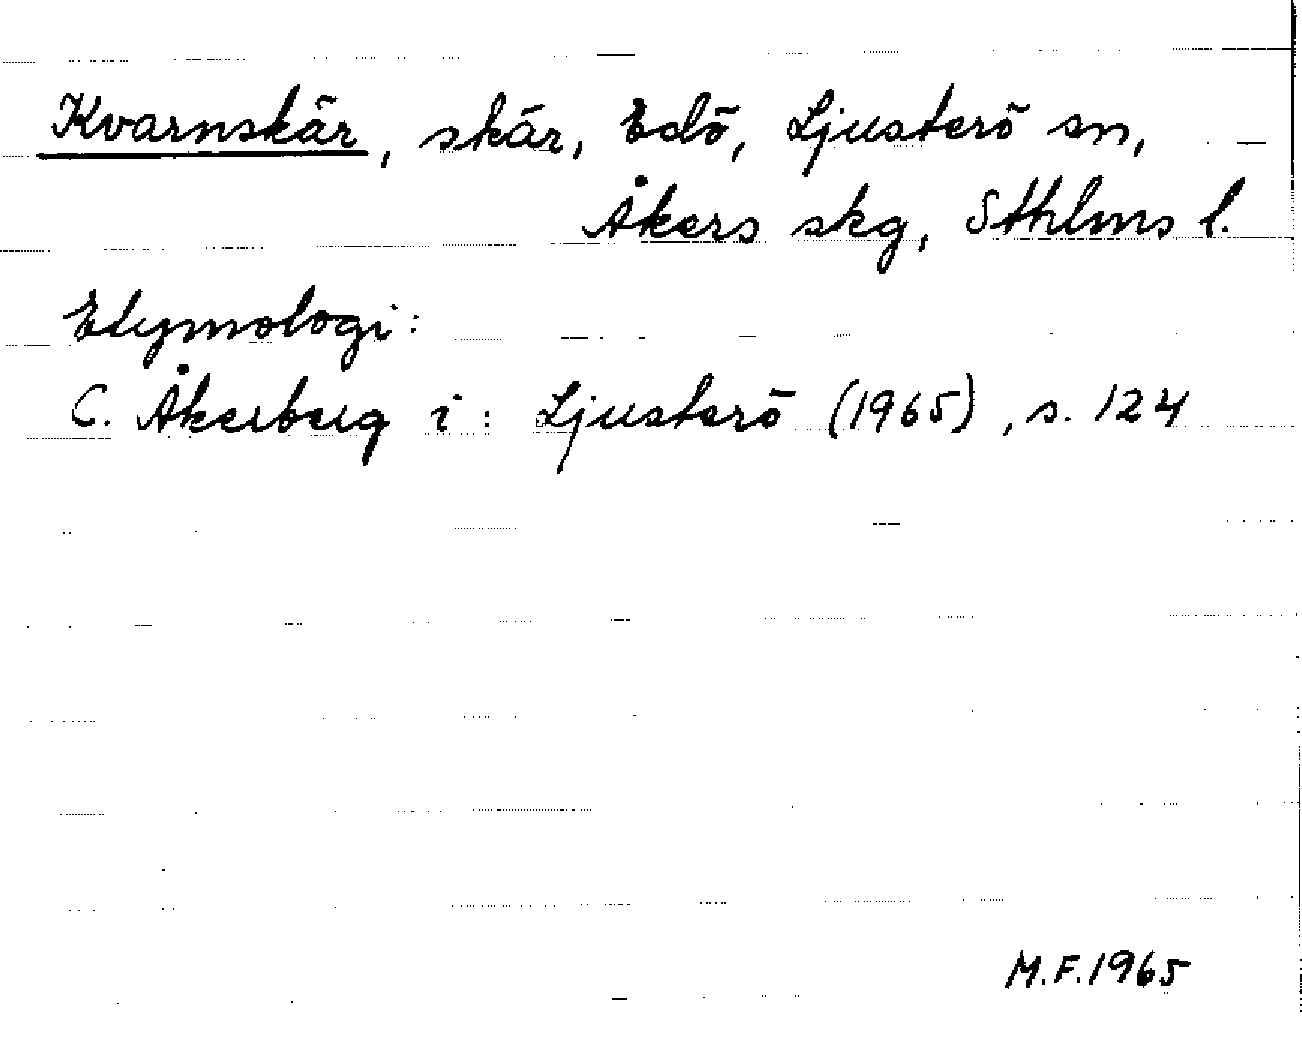 Kvarnskär, skär, Edö, Ljusterö sn,
Åkers skg, Sthlms l.
Etymologi:
C. Åkerberg i: Ljusterö (1965), s. 124
M.F. 1965